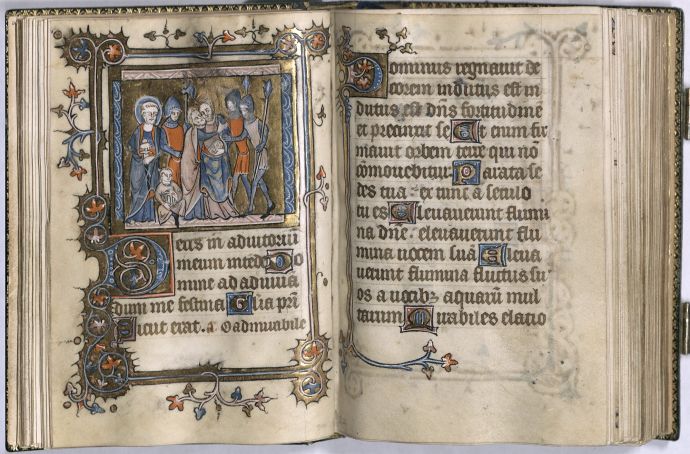 Deus in adiutoriū
meum intende Do
mine ad adiuuā
dum me festina Gl̄ia pr̄i
Sicut erat. a O admirabile
Dominus regnauit de
corem indutus est in
dutus est dn̄s fortitudinē
et precinxit se Et enim fir
mauit orbem terre qui nō
cōmouebitur Parata se
des tua ex tunc a seculo
tu es Eleuauerunt flumi
na dn̄e eleuauerunt flu
mina uocem suā Eleua
uerunt flumina fluctus su
os a uocibȝ aquarū mul
tarum Mirabiles elatio